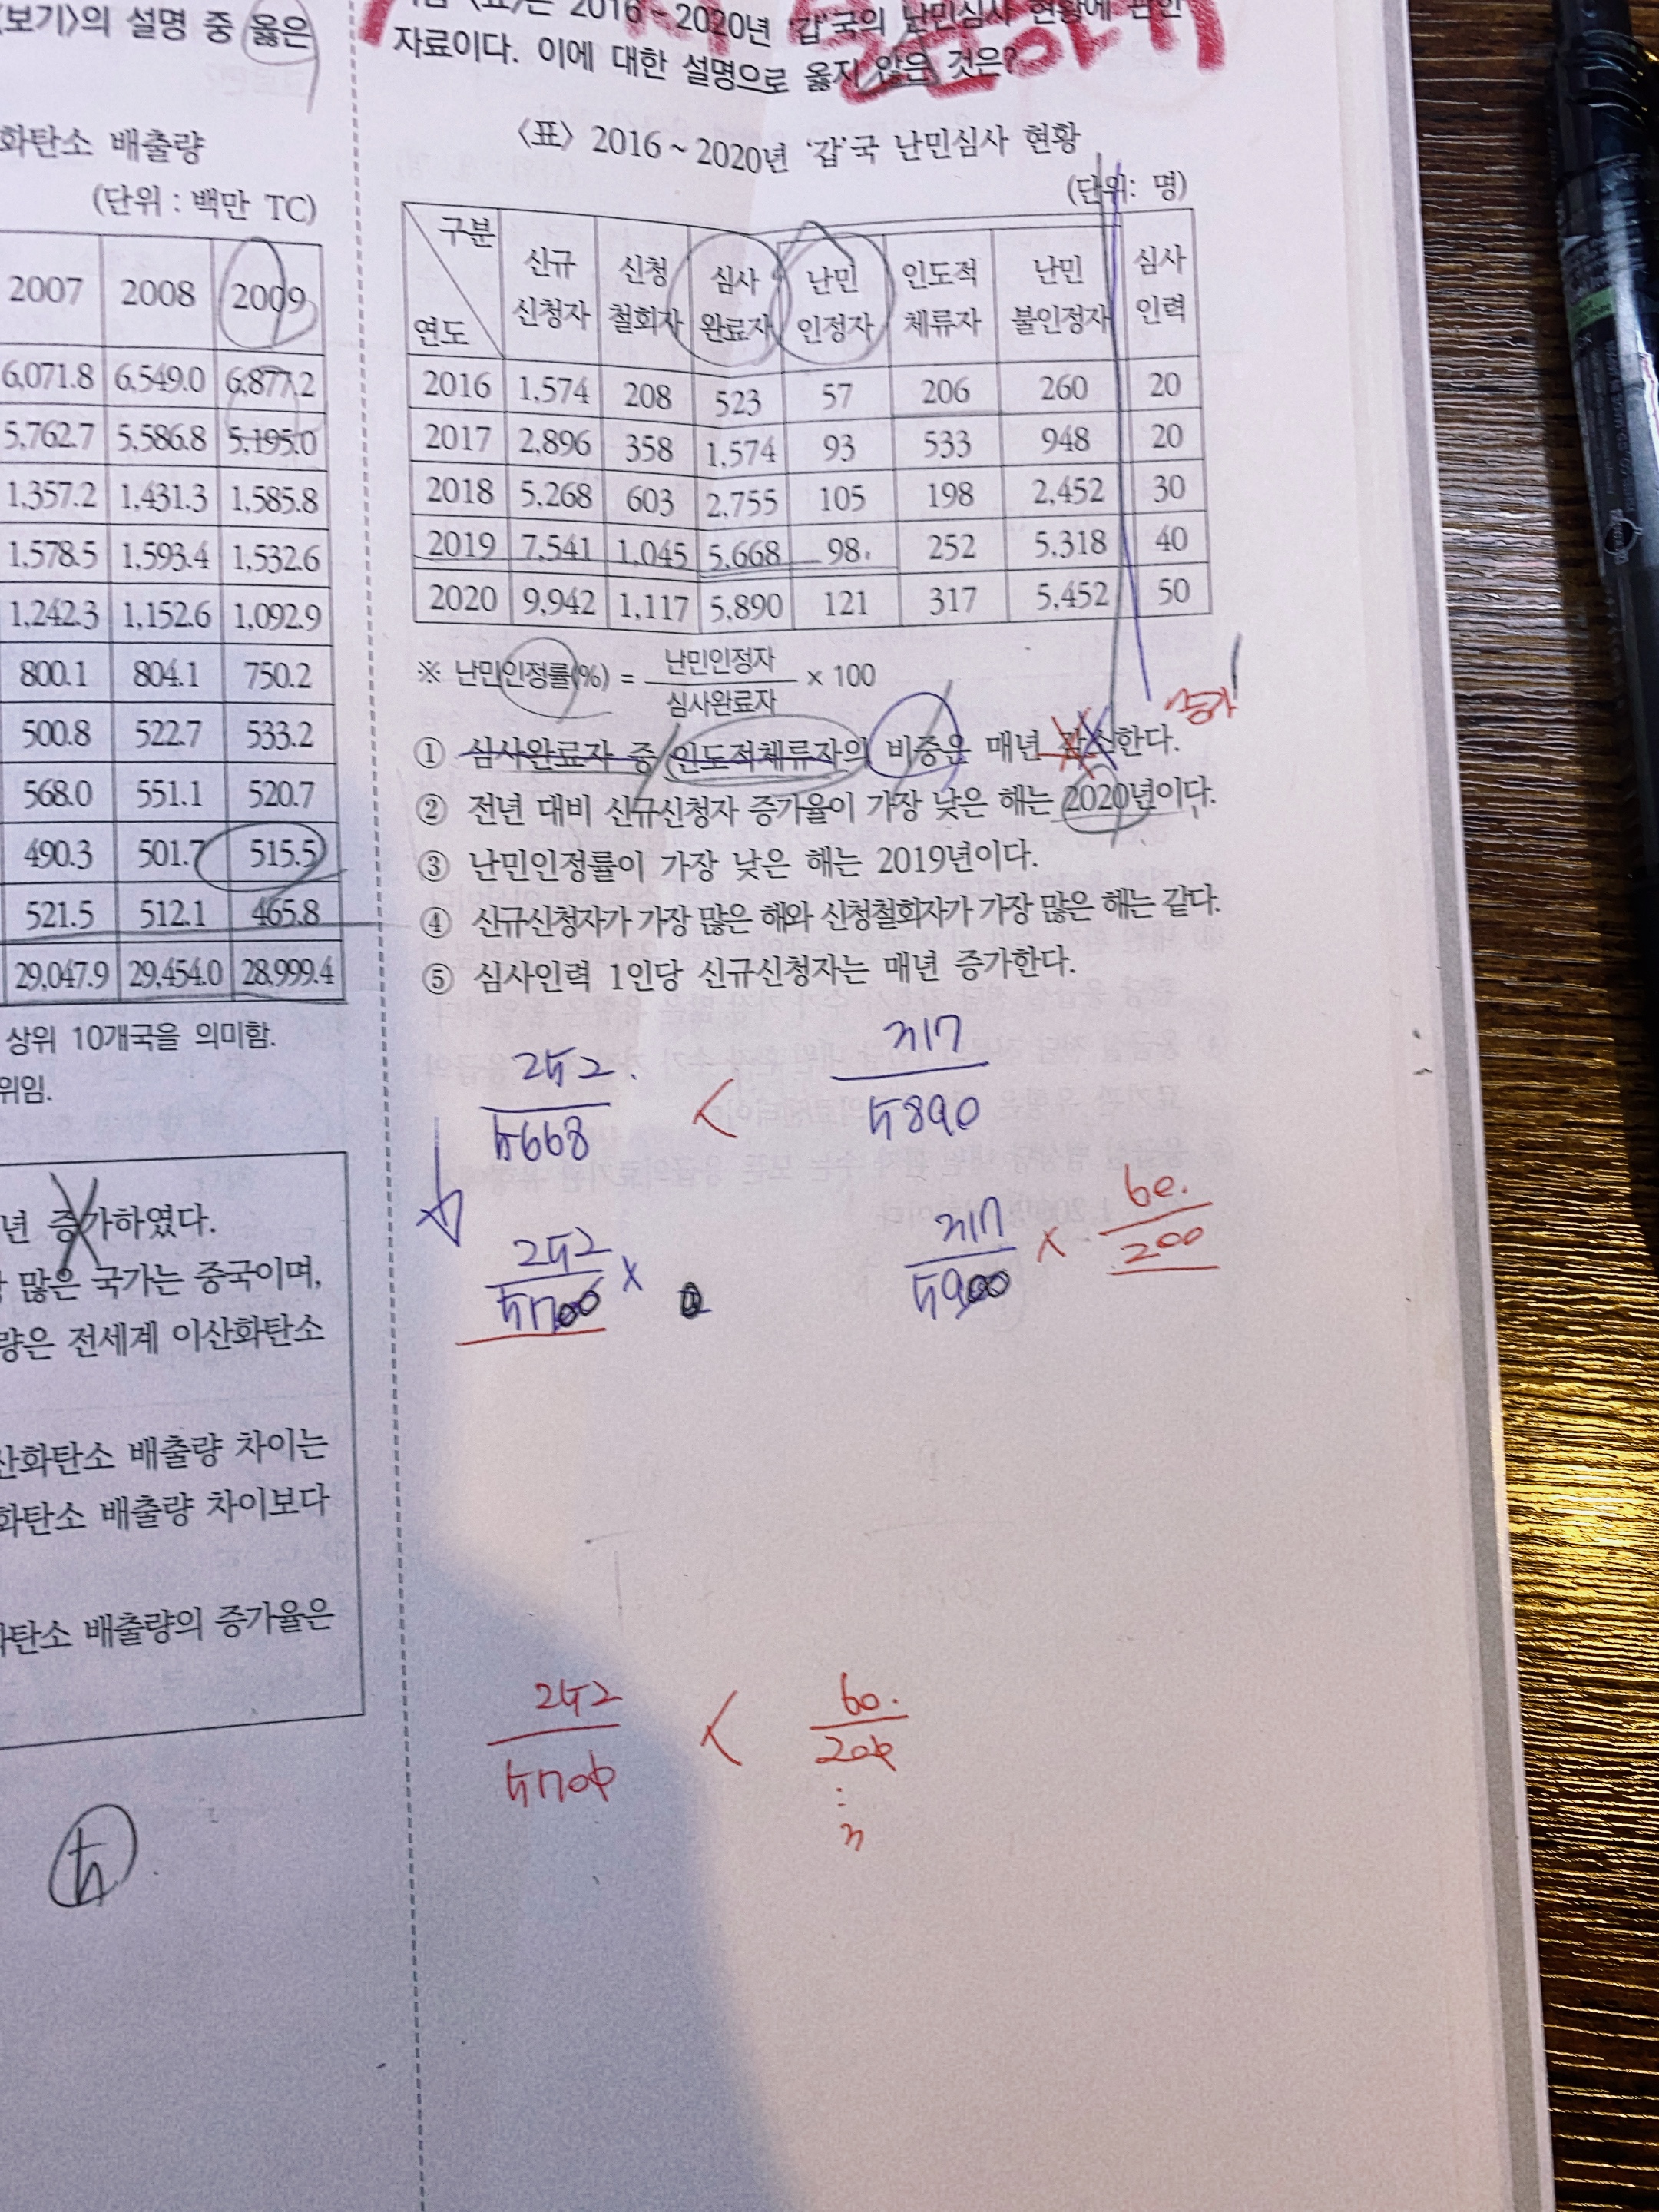 보기>의 설명 중 옳은
화탄소 배출량
(단위 : 백만 TC)
2007 2008 2009
6,071.8 6,549.0 6,877.2
5,762.7 5,586.8 5,195.0
1,357.2 1,431.3 1,585.8
1,578.5 1,593.4 1,532.6
1,242.3 1,152.6 1,092.9
800.1 804.1 750.2
500.8 522.7 533.2
568.0 551.1 520.7
490.3 501.7 515.5
521.5 512.1 465.8
29,047.9 29,454.0 28,999.4
상위 10개국을 의미함.
위임.
년 증가하였다.
많은 국가는 중국이며,
량은 전세계 이산화탄소
산화탄소 배출량 차이는
화탄소 배출량 차이보다
탄소 배출량의 증가율은
5
<표>는 2016~2020년 '갑'국의 난민심사 현황에 관한
자료이다. 이에 대한 설명으로 옳지 않은 것은?
<표> 2016~2020년 '갑'국 난민심사 현황
(단위: 명)
구분 연도 신규 신청자 신청 철회자 심사 완료자 난민 인정자 인도적 체류자 난민 불인정자 심사 인력
2016 1,574 208 523 57 206 260 20
2017 2,896 358 1,574 93 533 948 20
2018 5,268 603 2,755 105 198 2,452 30
2019 7,541 1,045 5,668 98 252 5,318 40
2020 9,942 1,117 5,890 121 317 5,452 50
※ 난민인정률(%) = 난민인정자 / 심사완료자 × 100
① 심사완료자 중 인도적체류자의 비중은 매년 한다.
증가
② 전년 대비 신규신청자 증가율이 가장 낮은 해는 2020년이다.
③ 난민인정률이 가장 낮은 해는 2019년이다.
④ 신규신청자가 가장 많은 해와 신청철회자가 가장 많은 해는 같다.
⑤ 심사인력 1인당 신규신청자는 매년 증가한다.
252 / 5668 < 317 / 5890
252 / 5700 × 317 / 5900 × 60. / 200
252 / 5700 < 60. / 200
3